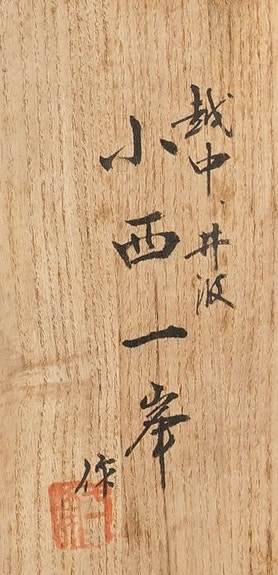 越中 井波
小西一峯
作